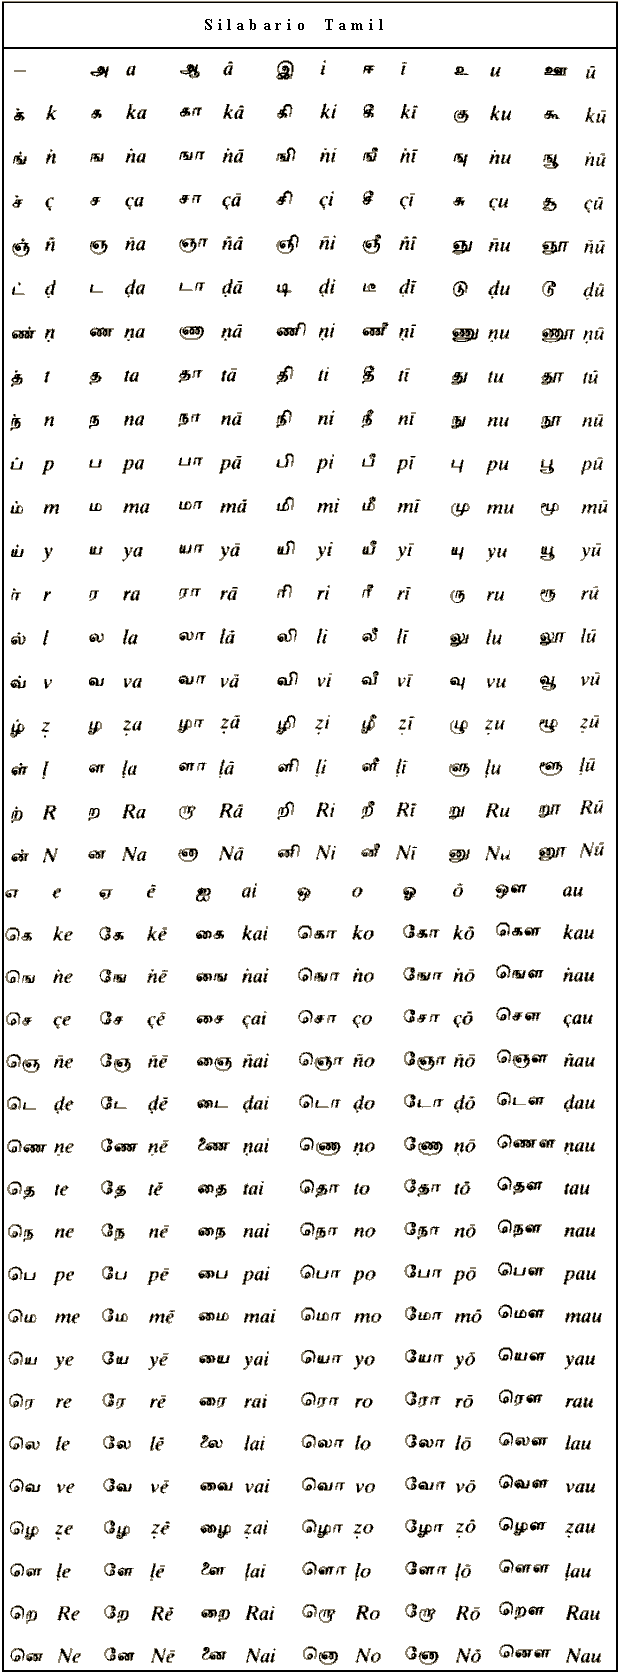 Silabario Tamil
– அ a ஆ â இ i ஈ ī உ u ஊ ū
க் k க ka கா kâ கி ki கீ kī கு ku கூ kū
ங் ṅ ங ṅa ஙா ṅā ஙி ṅi ஙீ ṅī ஙு ṅu ஙூ ṅū
ச் ç ச ça சா çā சி çi சீ çī சு çu சூ çū
ஞ் ñ ஞ ña ஞா ñâ ஞி ñi ஞீ ñī ஞு ñu ஞூ ñū
ட் ḍ ட ḍa டா ḍā டி ḍi டீ ḍī டு ḍu டூ ḍū
ண் ṇ ண ṇa ணா ṇā ணி ṇi ணீ ṇī ணு ṇu ணூ ṇū
த் t த ta தா tā தி ti தீ tī து tu தூ tū
ந் n ந na நா nā நி ni நீ nī நு nu நூ nū
ப் p ப pa பா pā பி pi பீ pī பு pu பூ pū
ம் m ம ma மா mā மி mi மீ mī மு mu மூ mū
ய் y ய ya யா yā யி yi யீ yī யு yu யூ yū
ர் r ர ra ரா rā ரி ri ரீ rī ரு ru ரூ rū
ல் l ல la லா lā லி li லீ lī லு lu லூ lū
வ் v வ va வா vā வி vi வீ vī வு vu வூ vū
ழ் ẓ ழ ẓa ழா ẓā ழி ẓi ழீ ẓī ழு ẓu ழூ ẓū
ள் ḷ ள ḷa ளா ḷā ளி ḷi ளீ ḷī ளு ḷu ளூ ḷū
ற் R ற Ra றா Rā றி Ri றீ Rī று Ru றூ Rū
ன் N ன Na னா Nā னி Ni னீ Nī னு Nu னூ Nū
எ e ஏ ē ஐ ai ஒ o ஓ ō ஔ au
கெ ke கே kē கை kai கொ ko கோ kō கௌ kau
ஙெ ṅe ஙே ṅē ஙை ṅai ஙொ ṅo ஙோ ṅō ஙௌ ṅau
செ çe சே çē சை çai சொ ço சோ çō சௌ çau
ஞெ ñe ஞே ñē ஞை ñai ஞொ ño ஞோ ñō ஞௌ ñau
டெ ḍe டே ḍē டை ḍai டொ ḍo டோ ḍō டௌ ḍau
ணெ ṇe ணே ṇē ணை ṇai ணொ ṇo ணோ ṇō ணௌ ṇau
தெ te தே tē தை tai தொ to தோ tō தௌ tau
நெ ne நே nē நை nai நொ no நோ nō நௌ nau
பெ pe பே pē பை pai பொ po போ pō பௌ pau
மெ me மே mē மை mai மொ mo மோ mō மௌ mau
யெ ye யே yē யை yai யொ yo யோ yō யௌ yau
ரெ re ரே rē ரை rai ரொ ro ரோ rō ரௌ rau
லெ le லே lē லை lai லொ lo லோ lō லௌ lau
வெ ve வே vē வை vai வொ vo வோ vō வௌ vau
ழெ ẓe ழே ẓē ழை ẓai ழொ ẓo ழோ ẓō ழௌ ẓau
ளெ ḷe ளே ḷē ளை ḷai ளொ ḷo ளோ ḷō ளௌ ḷau
றெ Re றே Rē றை Rai றொ Ro றோ Rō றௌ Rau
னெ Ne னே Nē னை Nai னொ No னோ Nō னௌ Nau